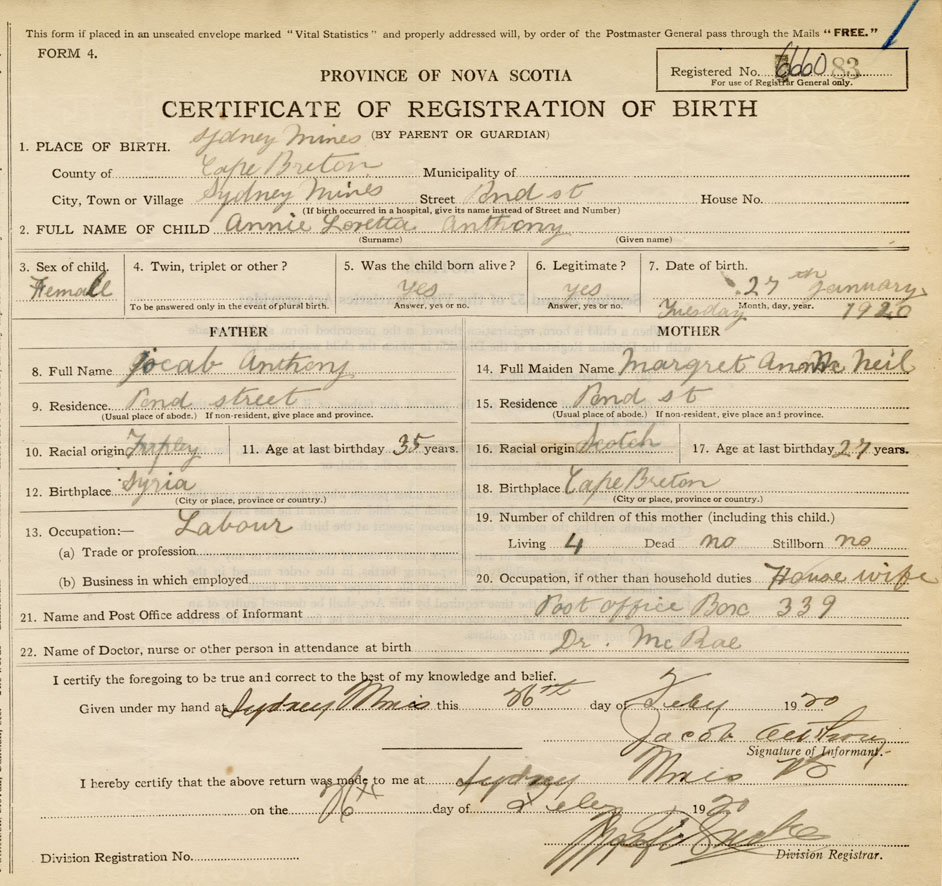 This form if placed in an unsealed envelope marked "Vital Statistics" and properly addressed will, by order of the Postmaster General pass through the Mails "FREE."
FORM 4.
Registered No. 6660 83
For use of Registrar General only.
PROVINCE OF NOVA SCOTIA
CERTIFICATE OF REGISTRATION OF BIRTH
(BY PARENT OR GUARDIAN)
1. PLACE OF BIRTH. Sydney Mines
County of Cape Breton Municipality of
City, Town or Village Sydney Mines Street Pond st House No.
(If birth occurred in a hospital, give its name instead of Street and Number)
2. FULL NAME OF CHILD Annie Loretta Anthony
(Surname) (Given name)
3. Sex of child. 4. Twin, triplet or other? 5. Was the child born alive? 6. Legitimate? 7. Date of birth.
Femall yes yes 27th January
To be answered only in the event of plural birth. Answer, yes or no. Answer, yes or no. Month, day, year.
Tuesday 1920
FATHER MOTHER
8. Full Name Jocab Anthony 14. Full Maiden Name Margret Ann Mc Neil
9. Residence. Pond street 15. Residence Pond st
(Usual place of abode.) If non-resident, give place and province. (Usual place of abode.) If non-resident, give place and province.
10. Racial origin 11. Age at last birthday 35 years. 16. Racial origin Scotch 17. Age at last birthday 27 years.
12. Birthplace Syria 18. Birthplace Cape Breton
(City or place, province or country.) (City or place, province or country.)
13. Occupation:— Labour 19. Number of children of this mother (including this child.)
(a) Trade or profession Living 4 Dead no Stillborn no
(b) Business in which employed 20. Occupation, if other than household duties House wife
21. Name and Post Office address of Informant Post office Box 339
22. Name of Doctor, nurse or other person in attendance at birth Dr. McRae
I certify the foregoing to be true and correct to the best of my knowledge and belief.
Given under my hand at Sydney Mines this 26th day of Feby 1920
Jacob Anthony
Signature of Informant.
I hereby certify that the above return was made to me at Sydney Mines
on the 26th day of Feby 1920
Division Registration No. Division Registrar.